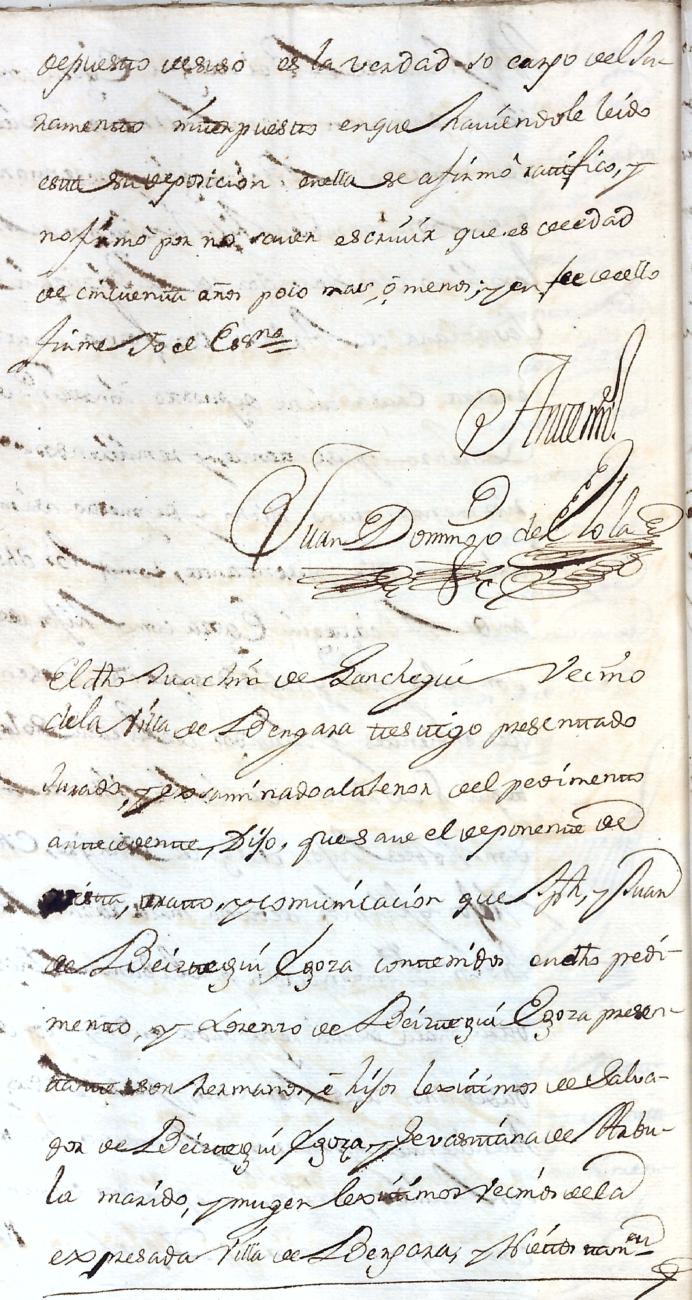 depuesto de suso es la verdad so cargo del Ju-
ramento interpuesto en que haviendole leido
esta su deposicion en ella se afirmò ratifico, y
no firmò por no saver escrivir que es de edad
de cinquenta años poco mas, ò menos; y en fee de ello
firme Yo el Essno
Antemi
Juan Domingo de
El dho Juachin de Lanchegui Vecino
de la Villa de Bergara testigo presentado
Jurado, y examinado al tenor del pedimento
antecedente, Dijo, que save el deponente de
vista, tratto, y comunicacion que Jph, y Juan
de Beiztegui Egoza contenidos en dho pedi-
mento, y Lorenzo de Beiztegui Egoza presen-
tante son hermanos, è hijos lexitimos de Salva-
dor de Beiztegui Egoza, y Sevastiana de Arbu-
la marido, y muger lexitimos Vecinos de la
expresada Villa de Bergara, y Nietos tamvn